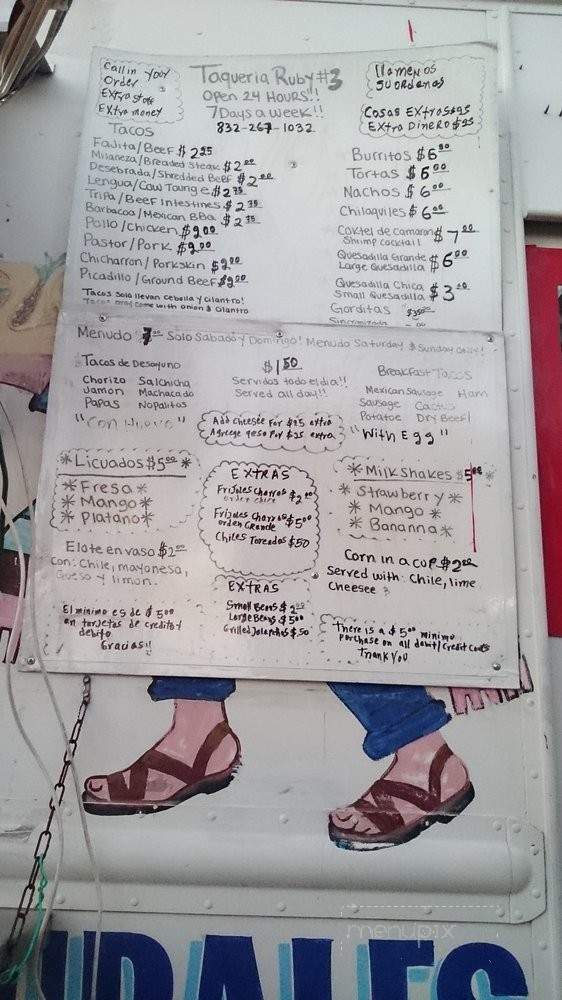 Call in your
Order
Extra stuff
Extra money
Taqueria Ruby #3
Open 24 Hours!!
7 Days a week!!
832-267-1032
llamenos
su ordenas
Cosas Extrasas
Extra Dinero $25
Tacos
Fajita/Beef $2 25
Milaneza/Breaded Steak $2 00
Desebrada/Shredded Beef $2 00
Lengua/Cow Tounge $2 75
Tripa/Beef Intestines $2 75
Barbacoa/Mexican BBQ $2 75
Pollo/Chicken $2 00
Pastor/Pork $2 00
Chicharron/Porkskin $2 00
Picadillo/Ground Beef $2 00
Tacos solo llevan cebolla y cilantro!
Tacos only come with onion & cilantro
Burritos $6 00
Tortas $6 00
Nachos $6 00
Chilaquiles $6 00
Coktel de camaron $7 00
Shrimp cocktail
Quesadilla Grande $6 00
Large Quesadilla
Quesadilla Chica $3 00
Small Quesadilla
Gorditas $3 50
Sincronizada
Menudo 7 00 Solo Sabado y Domingo! Menudo Saturday & Sunday only!
Tacos de Desayuno
Chorizo Salchicha
Jamon Machacado
Papas Nopalitos
"con Huevo"
$1 50
Servidos todo el dia!!
Served all day!!
Add cheese for $25 extra
Agrege qeso por $25 extra
Breakfast Tacos
Mexican Sausage Ham
Sausage Cactus
Potatoe Dry Beef
"With Egg"
*Licuados $5 00 *
*Fresa*
*Mango*
*Platano*
EXTRAS
Frijoles Charros $2 00
orden chica
Frijoles Charros $5 00
orden Grande
Chiles Toreados $50
*Milkshakes $5 00 *
*Strawberry*
*Mango*
*Bananna*
Elote en vaso $2 00
con: Chile, mayonesa,
Queso y limon.
Corn in a cup $2 00
Served with: Chile, lime
Cheesee
El minimo es de $5 00
en tarjetas de credito y
debito
Gracias!!
EXTRAS
Small Beans $2 00
Large Beans $5 00
Grilled Jalapeños $50
There is a $5 00 minimo
purchase on all debit/credit cards
Thank you
menupix